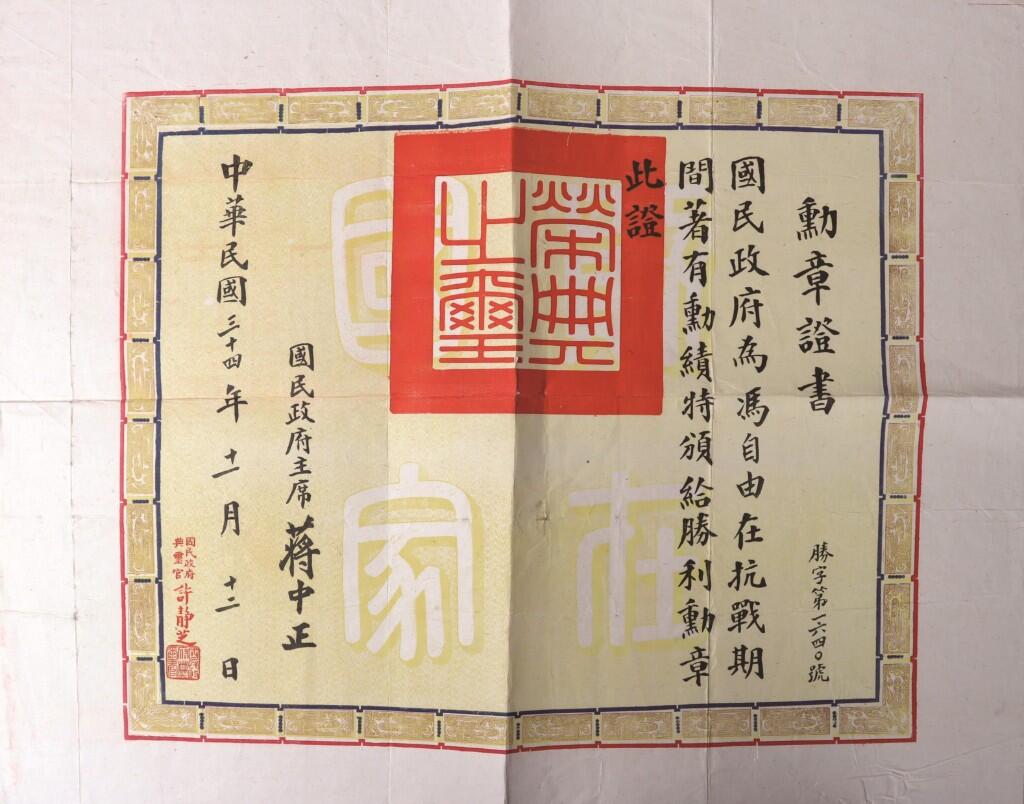 勳章證書
勝字第一六四〇號
國民政府為馮自由在抗戰期
間著有勳績特頒給勝利勳章
此證
榮典
之璽
在
國
家
國民政府主席蔣中正
中華民國三十四年十一月十二日
國民政府
典璽官許靜芝